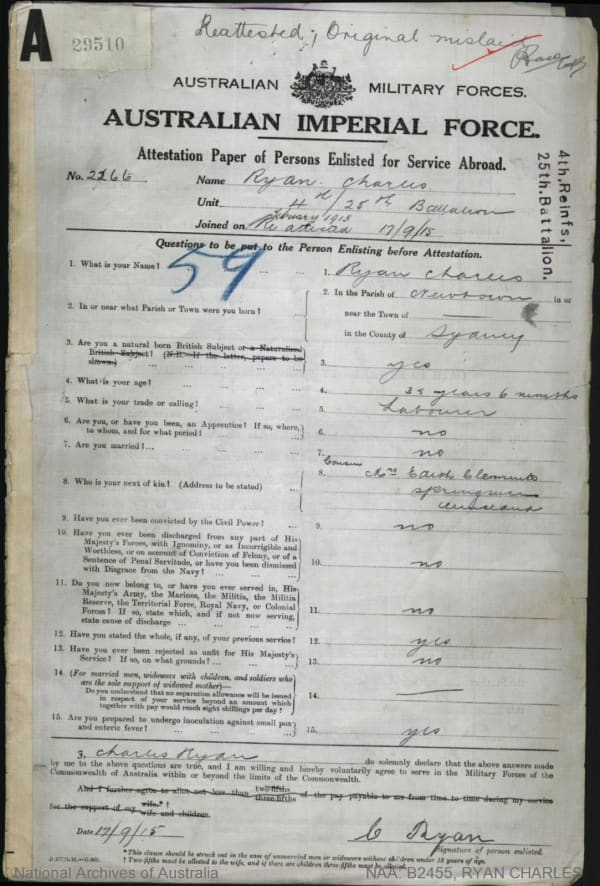 Reattested; Original mislaid
A
29510
AUSTRALIAN MILITARY FORCES.
AUSTRALIAN IMPERIAL FORCE.
Attestation Paper of Persons Enlisted for Service Abroad.
No. 2266 Name Ryan Charles
Unit 4th/25th Battalion
February 1915
Joined on 17/9/15
4th. Reinfs,
25th. Battalion.
Questions to be put to the Person Enlisting before Attestation.
59
1. What is your Name? ... ... 1. Ryan Charles
2. In or near what Parish or Town were you born? ... 2. In the Parish of Newtown in or
near the Town of
in the County of Sydney
3. Are you a natural born British Subject or a Naturalized
British Subject? (N.B.—If the latter, papers to be
shown.) ... ... ... 3. yes
4. What is your age? ... ... ... 4. 38 years 6 months
5. What is your trade or calling? ... ... 5. Labourer
6. Are you, or have you been, an Apprentice? If so, where,
to whom, and for what period? ... ... 6. no
7. Are you married? ... ... ... 7. no
Cousin
8. Who is your next of kin? (Address to be stated) ... 8. Mrs Edith Clements
Springsure
Queensland
9. Have you ever been convicted by the Civil Power? ... 9. no
10. Have you ever been discharged from any part of His
Majesty's Forces, with Ignominy, or as Incorrigible and
Worthless, or on account of Conviction of Felony, or of a
Sentence of Penal Servitude, or have you been dismissed
with Disgrace from the Navy? ... ... 10. no
11. Do you now belong to, or have you ever served in, His
Majesty's Army, the Marines, the Militia, the Militia
Reserve, the Territorial Force, Royal Navy, or Colonial
Forces? If so, state which, and if not now serving,
state cause of discharge ... ... 11. no
12. Have you stated the whole, if any, of your previous service? 12. yes
13. Have you ever been rejected as unfit for His Majesty's
Service? If so, on what grounds? ... ... 13. no
14. (For married men, widowers with children, and soldiers who
are the sole support of widowed mother)—
Do you understand that no separation allowance will be issued
in respect of your service beyond an amount which
together with pay would reach eight shillings per day? 14.
15. Are you prepared to undergo inoculation against small pox
and enteric fever? ... ... ... 15. yes
I, Charles Ryan do solemnly declare that the above answers made
by me to the above questions are true, and I am willing and hereby voluntarily agree to serve in the Military Forces of the
Commonwealth of Australia within or beyond the limits of the Commonwealth.
And I further agree to allot not less than two-fifths three-fifths of the pay payable to me from time to time during my service
for the support of my wife.*† wife and children.
Date 17/9/15 C Ryan
Signature of person enlisted.
*This clause should be struck out in the case of unmarried men or widowers without children under 18 years of age.
† Two fifths must be allotted to the wife, and if there are children three-fifths must be allotted.
National Archives of Australia NAA: B2455, RYAN CHARLES